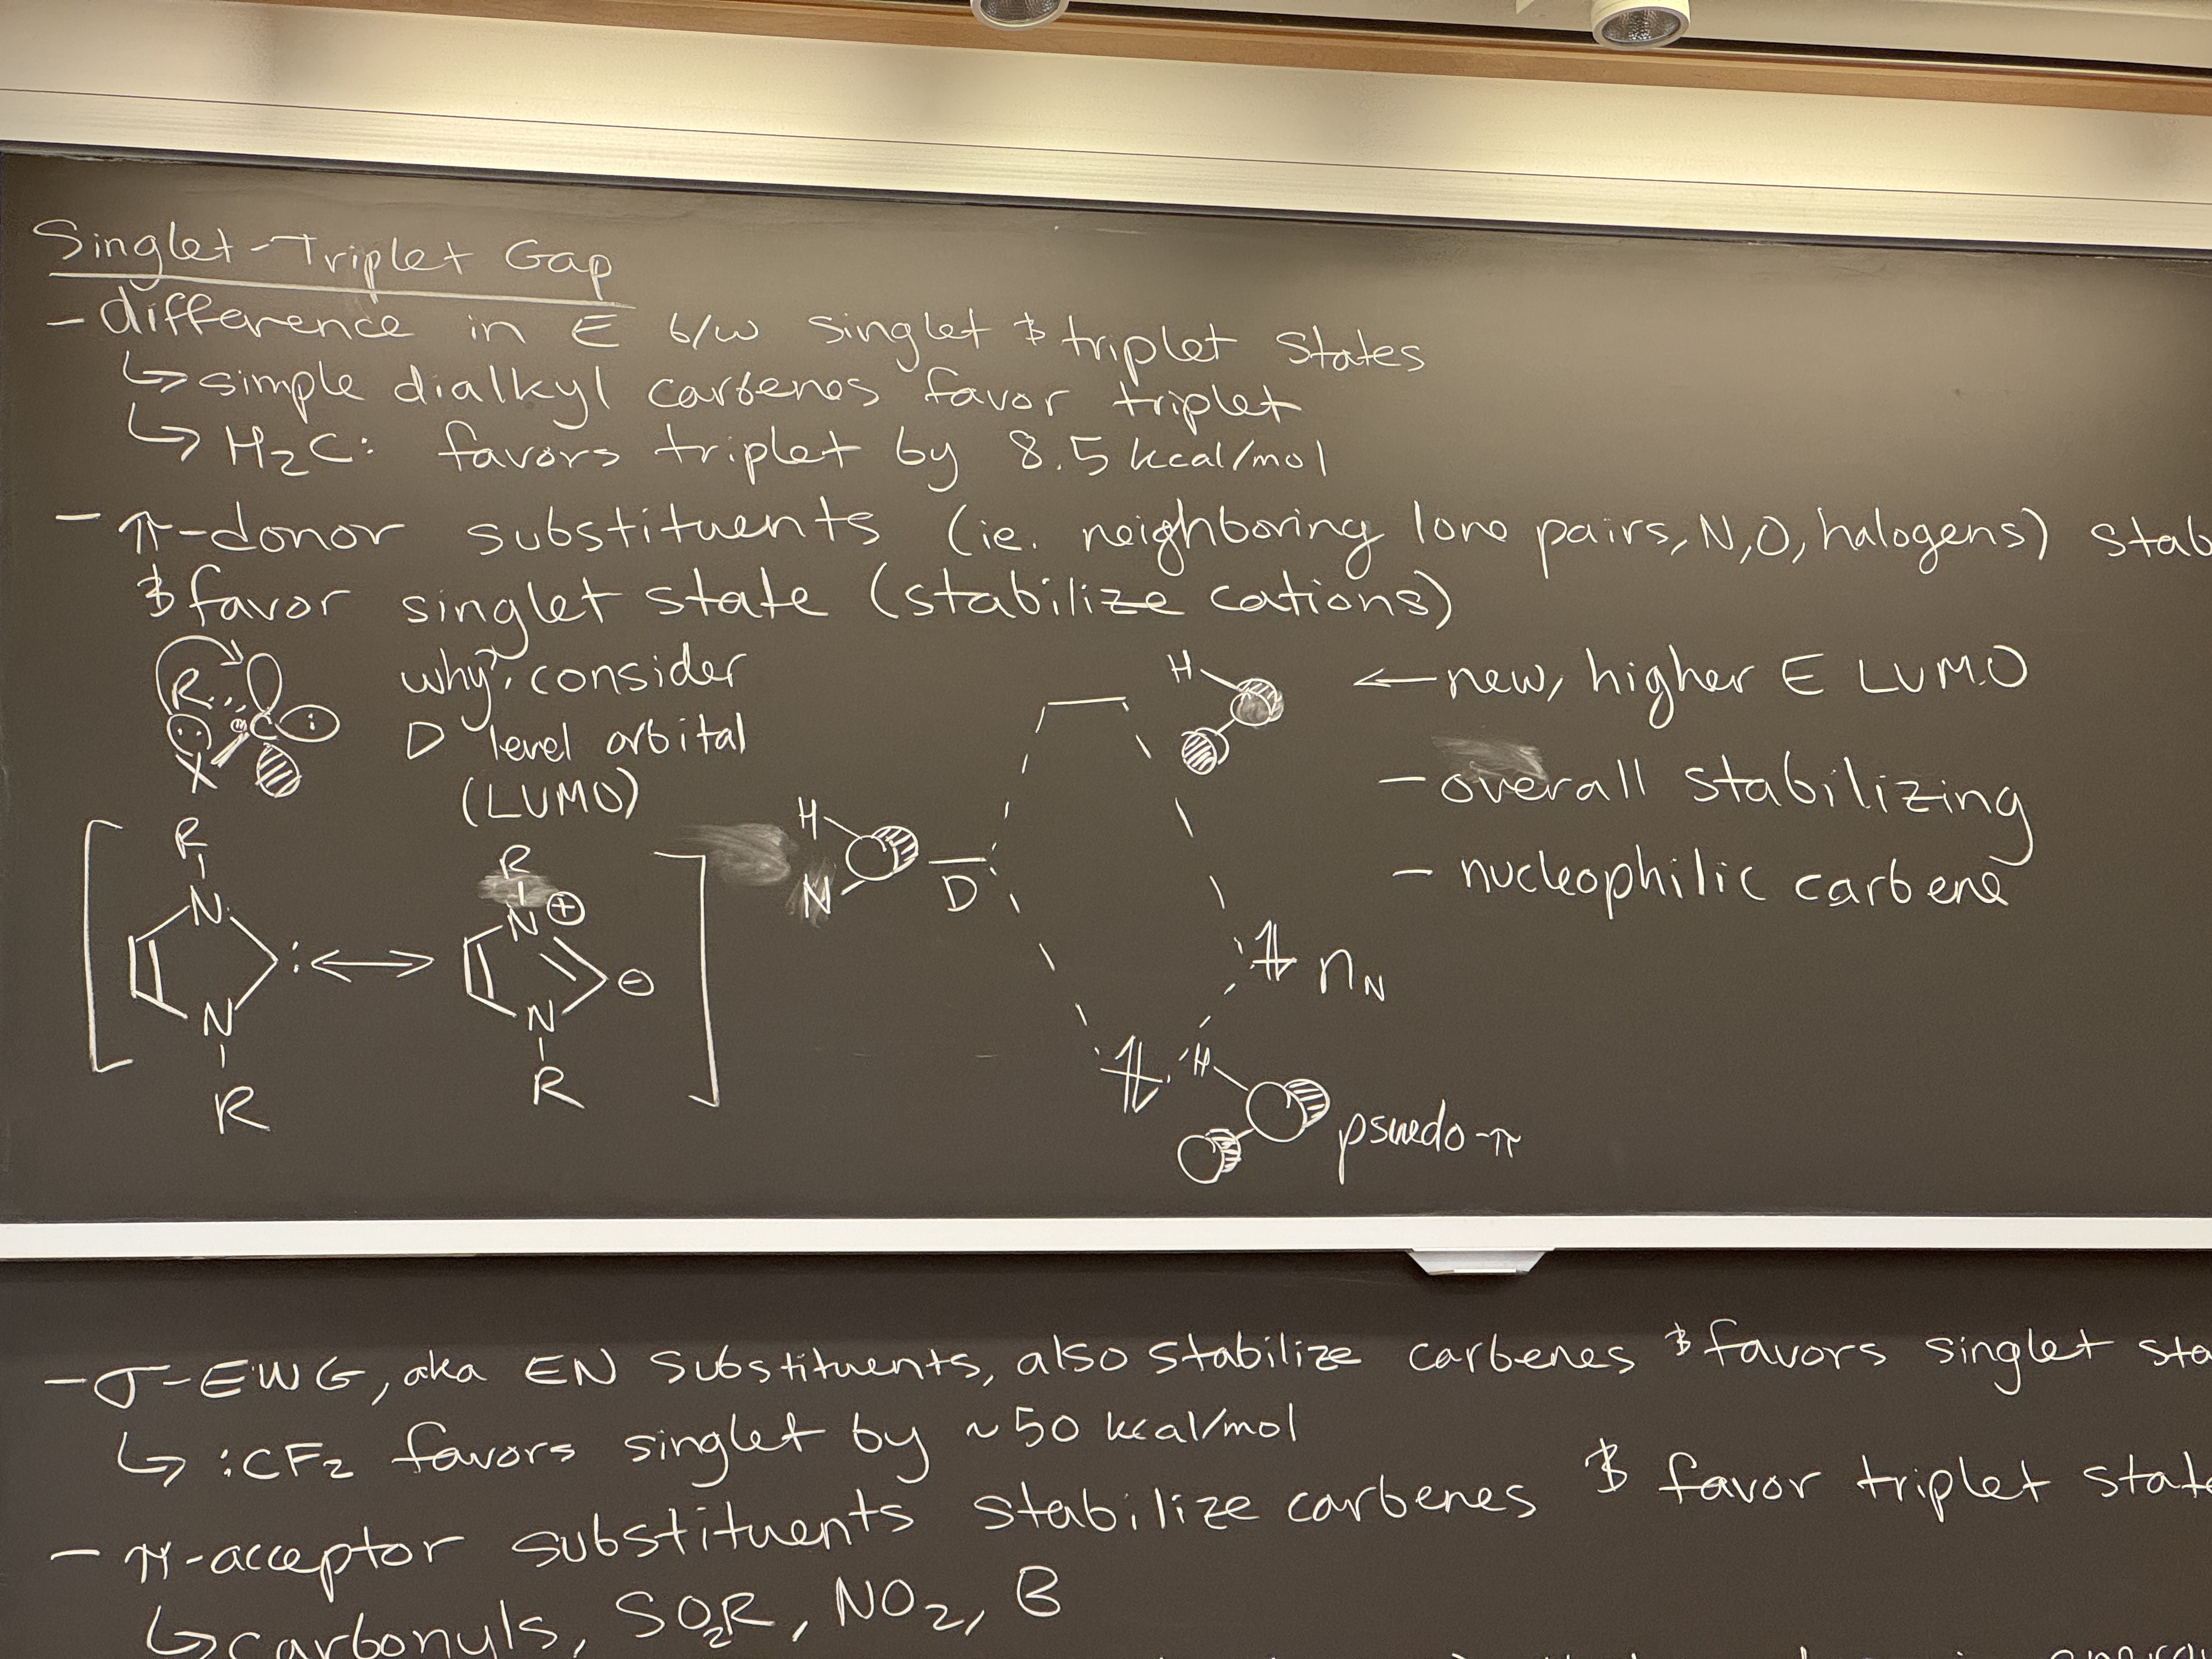 Singlet-Triplet Gap
- difference in E b/w singlet & triplet states
↳ simple dialkyl carbenes favor triplet
↳ H₂C: favors triplet by 8.5 kcal/mol
- π-donor substituents (ie. neighboring lone pairs, N, O, halogens)
& favor singlet state (stabilize cations)
why? consider
D level orbital
(LUMO)
R C :
: X
H
← new, higher E LUMO
- overall stabilizing
- nucleophilic carbene
H
N
D
n_N
H
psuedo-π
R
N
:
N
R
↔
R
N ⊕
⊖
N
R
- σ-EWG, aka EN substituents, also stabilize carbenes & favors singlet
↳ :CF₂ favors singlet by ~50 kcal/mol
- π-acceptor substituents stabilize carbenes & favor triplet
↳ carbonyls, SO₂R, NO₂, B